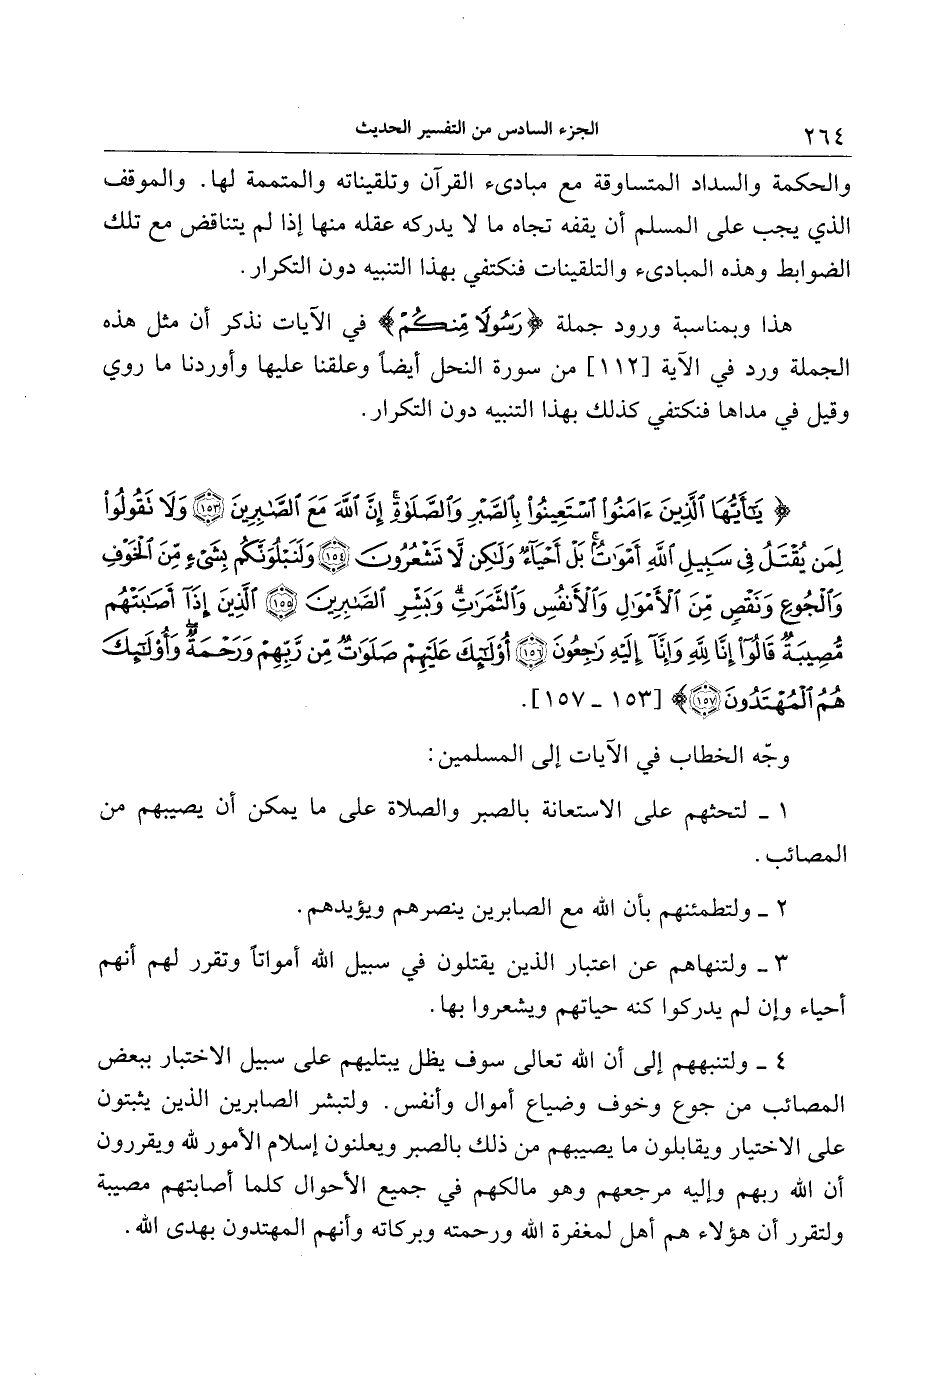 ٢٦٤ الجزء السادس من التفسير الحديث
والحكمة والسداد المتساوقة مع مبادىء القرآن وتلقيناته والمتممة لها. والموقف
الذي يجب على المسلم أن يقفه تجاه ما لا يدركه عقله منها إذا لم يتناقض مع تلك
الضوابط وهذه المبادىء والتلقينات فنكتفي بهذا التنبيه دون التكرار.
هذا وبمناسبة ورود جملة ﴿رَسُولًا مِّنكُمْ﴾ في الآيات نذكر أن مثل هذه
الجملة ورد في الآية [١١٢] من سورة النحل أيضاً وعلقنا عليها وأوردنا ما روي
وقيل في مداها فنكتفي كذلك بهذا التنبيه دون التكرار.
﴿ يَـٰٓأَيُّهَا ٱلَّذِينَ ءَامَنُوا۟ ٱسْتَعِينُوا۟ بِٱلصَّبْرِ وَٱلصَّلَوٰةِ ۚ إِنَّ ٱللَّهَ مَعَ ٱلصَّـٰبِرِينَ ١٥٣ وَلَا تَقُولُوا۟
لِمَن يُقْتَلُ فِى سَبِيلِ ٱللَّهِ أَمْوَٰتٌۢ ۚ بَلْ أَحْيَآءٌ وَلَـٰكِن لَّا تَشْعُرُونَ ١٥٤ وَلَنَبْلُوَنَّكُم بِشَىْءٍ مِّنَ ٱلْخَوْفِ
وَٱلْجُوعِ وَنَقْصٍ مِّنَ ٱلْأَمْوَٰلِ وَٱلْأَنفُسِ وَٱلثَّمَرَٰتِ ۗ وَبَشِّرِ ٱلصَّـٰبِرِينَ ١٥٥ ٱلَّذِينَ إِذَآ أَصَـٰبَتْهُم
مُّصِيبَةٌ قَالُوٓا۟ إِنَّا لِلَّهِ وَإِنَّآ إِلَيْهِ رَٰجِعُونَ ١٥٦ أُو۟لَـٰٓئِكَ عَلَيْهِمْ صَلَوَٰتٌ مِّن رَّبِّهِمْ وَرَحْمَةٌ ۖ وَأُو۟لَـٰٓئِكَ
هُمُ ٱلْمُهْتَدُونَ ١٥٧﴾ [١٥٣ ـ ١٥٧].
وجّه الخطاب في الآيات إلى المسلمين:
١ ـ لتحثهم على الاستعانة بالصبر والصلاة على ما يمكن أن يصيبهم من
المصائب.
٢ ـ ولتطمئنهم بأن الله مع الصابرين ينصرهم ويؤيدهم.
٣ ـ ولتنهاهم عن اعتبار الذين يقتلون في سبيل الله أمواتاً وتقرر لهم أنهم
أحياء وإن لم يدركوا كنه حياتهم ويشعروا بها.
٤ ـ ولتنبههم إلى أن الله تعالى سوف يظل يبتليهم على سبيل الاختبار ببعض
المصائب من جوع وخوف وضياع أموال وأنفس. ولتبشر الصابرين الذين يثبتون
على الاختبار ويقابلون ما يصيبهم من ذلك بالصبر ويعلنون إسلام الأمور لله ويقررون
أن الله ربهم وإليه مرجعهم وهو مالكهم في جميع الأحوال كلما أصابتهم مصيبة
ولتقرر أن هؤلاء هم أهل لمغفرة الله ورحمته وبركاته وأنهم المهتدون بهدى الله.